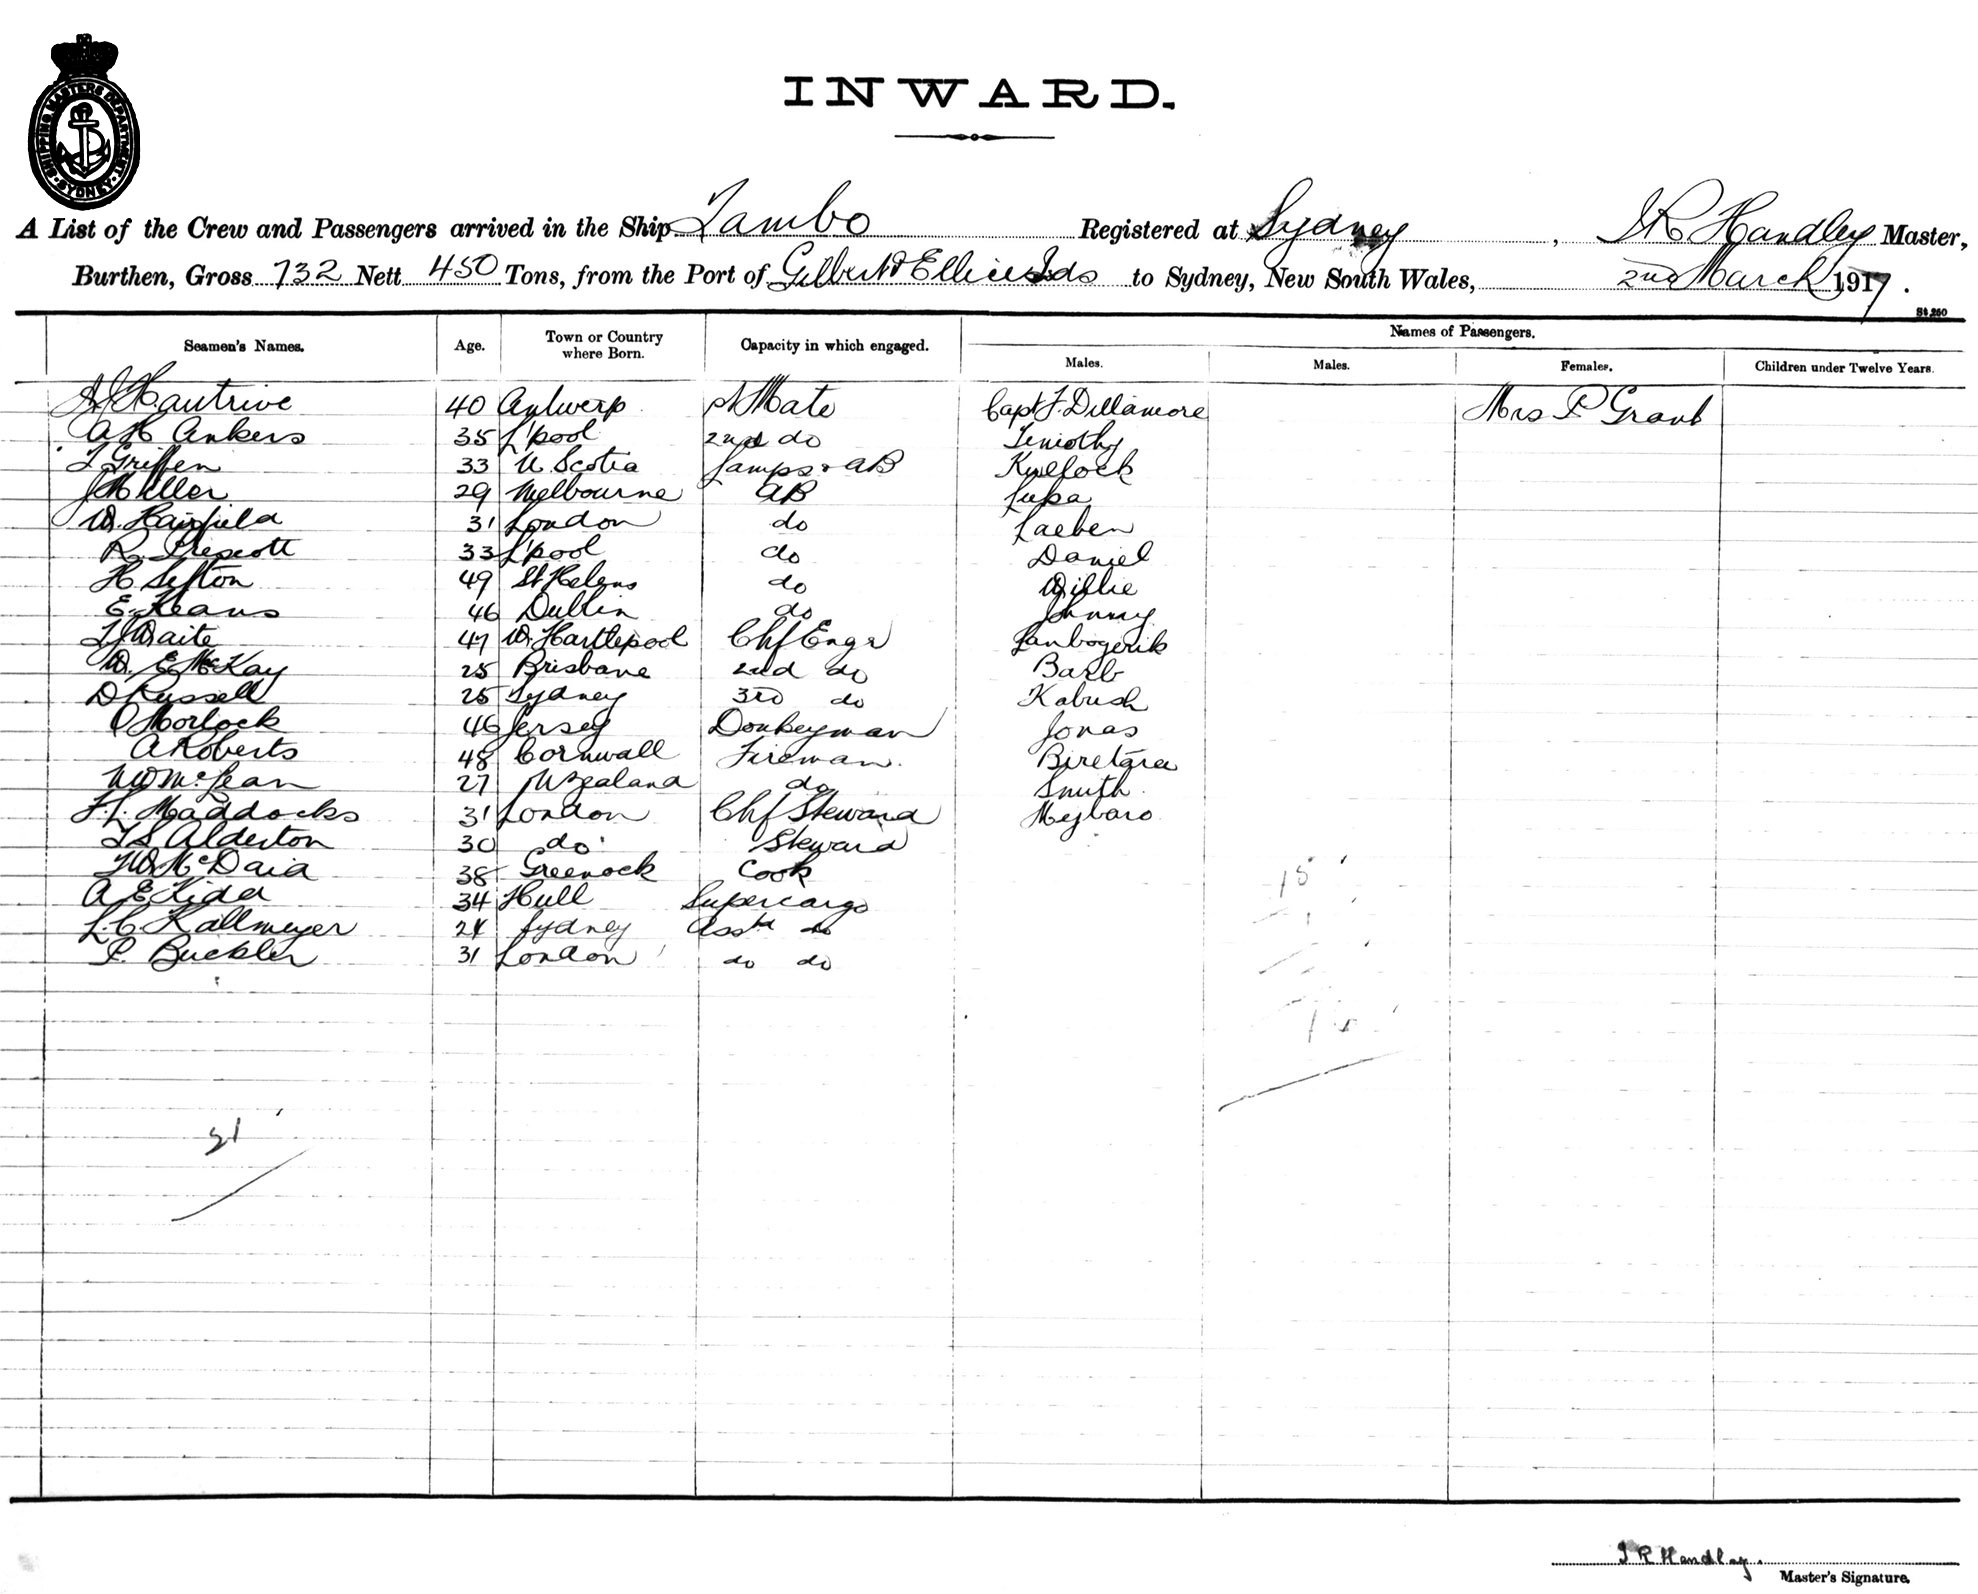 SHIPPING MASTERS DEPARTMENT SYDNEY
INWARD.
A List of the Crew and Passengers arrived in the Ship Tambo Registered at Sydney, J R Handley Master,
Burthen, Gross 732 Nett 450 Tons, from the Port of Gilbert & Ellice Ids to Sydney, New South Wales, 2nd March 1917.
St.250
Seamen's Names. Age. Town or Country where Born. Capacity in which engaged. Names of Passengers.
Males. Males. Females. Children under Twelve Years.
Hautrive 40 Antwerp Mate Capt F. Dillamore Mrs P Grant
A H Ankers 35 L'pool 2nd do Timothy
T Griffen 33 N. Scotia Lamps & AB
J Miller 29 Melbourne AB
W. Hairfield 31 London do Laeben
R. Prescott 33 L'pool do Daniel
H Sefton 49 St Helens do Willie
E. Keans 46 Dublin do Johnny
T Waite 47 W. Hartlepool Chf Engr
W. E McKay 25 Brisbane 2nd do
D Russell 25 Sydney 3rd do Kabush
Morlock 46 Jersey Donkeyman Jonas
A Roberts 48 Cornwall Fireman. Biretara
McLean 27 N Zealand do Smith
F. L. Maddocks 31 London Chf Steward Mejbaro
T S Alderton 30 do Steward
38 Greenock Cook
A E Kidd 34 Hull Supercargo
L. C. Kallmeyer 24 Sydney Asst do
P. Buckler 31 London do do
15
21
J R Handley.
Master's Signature.